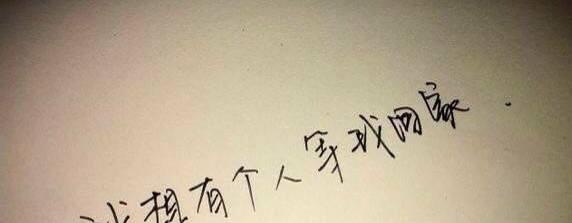 我想有个人等我回家.